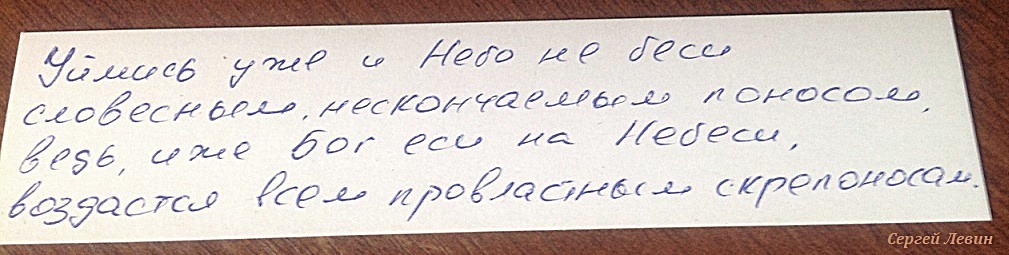 Уймись уже и Небо не беси
словесным, нескончаемым поносом,
ведь, иже Бог еси на Небеси,
воздастся всем провластным скрепоносам.
Сергей Левин